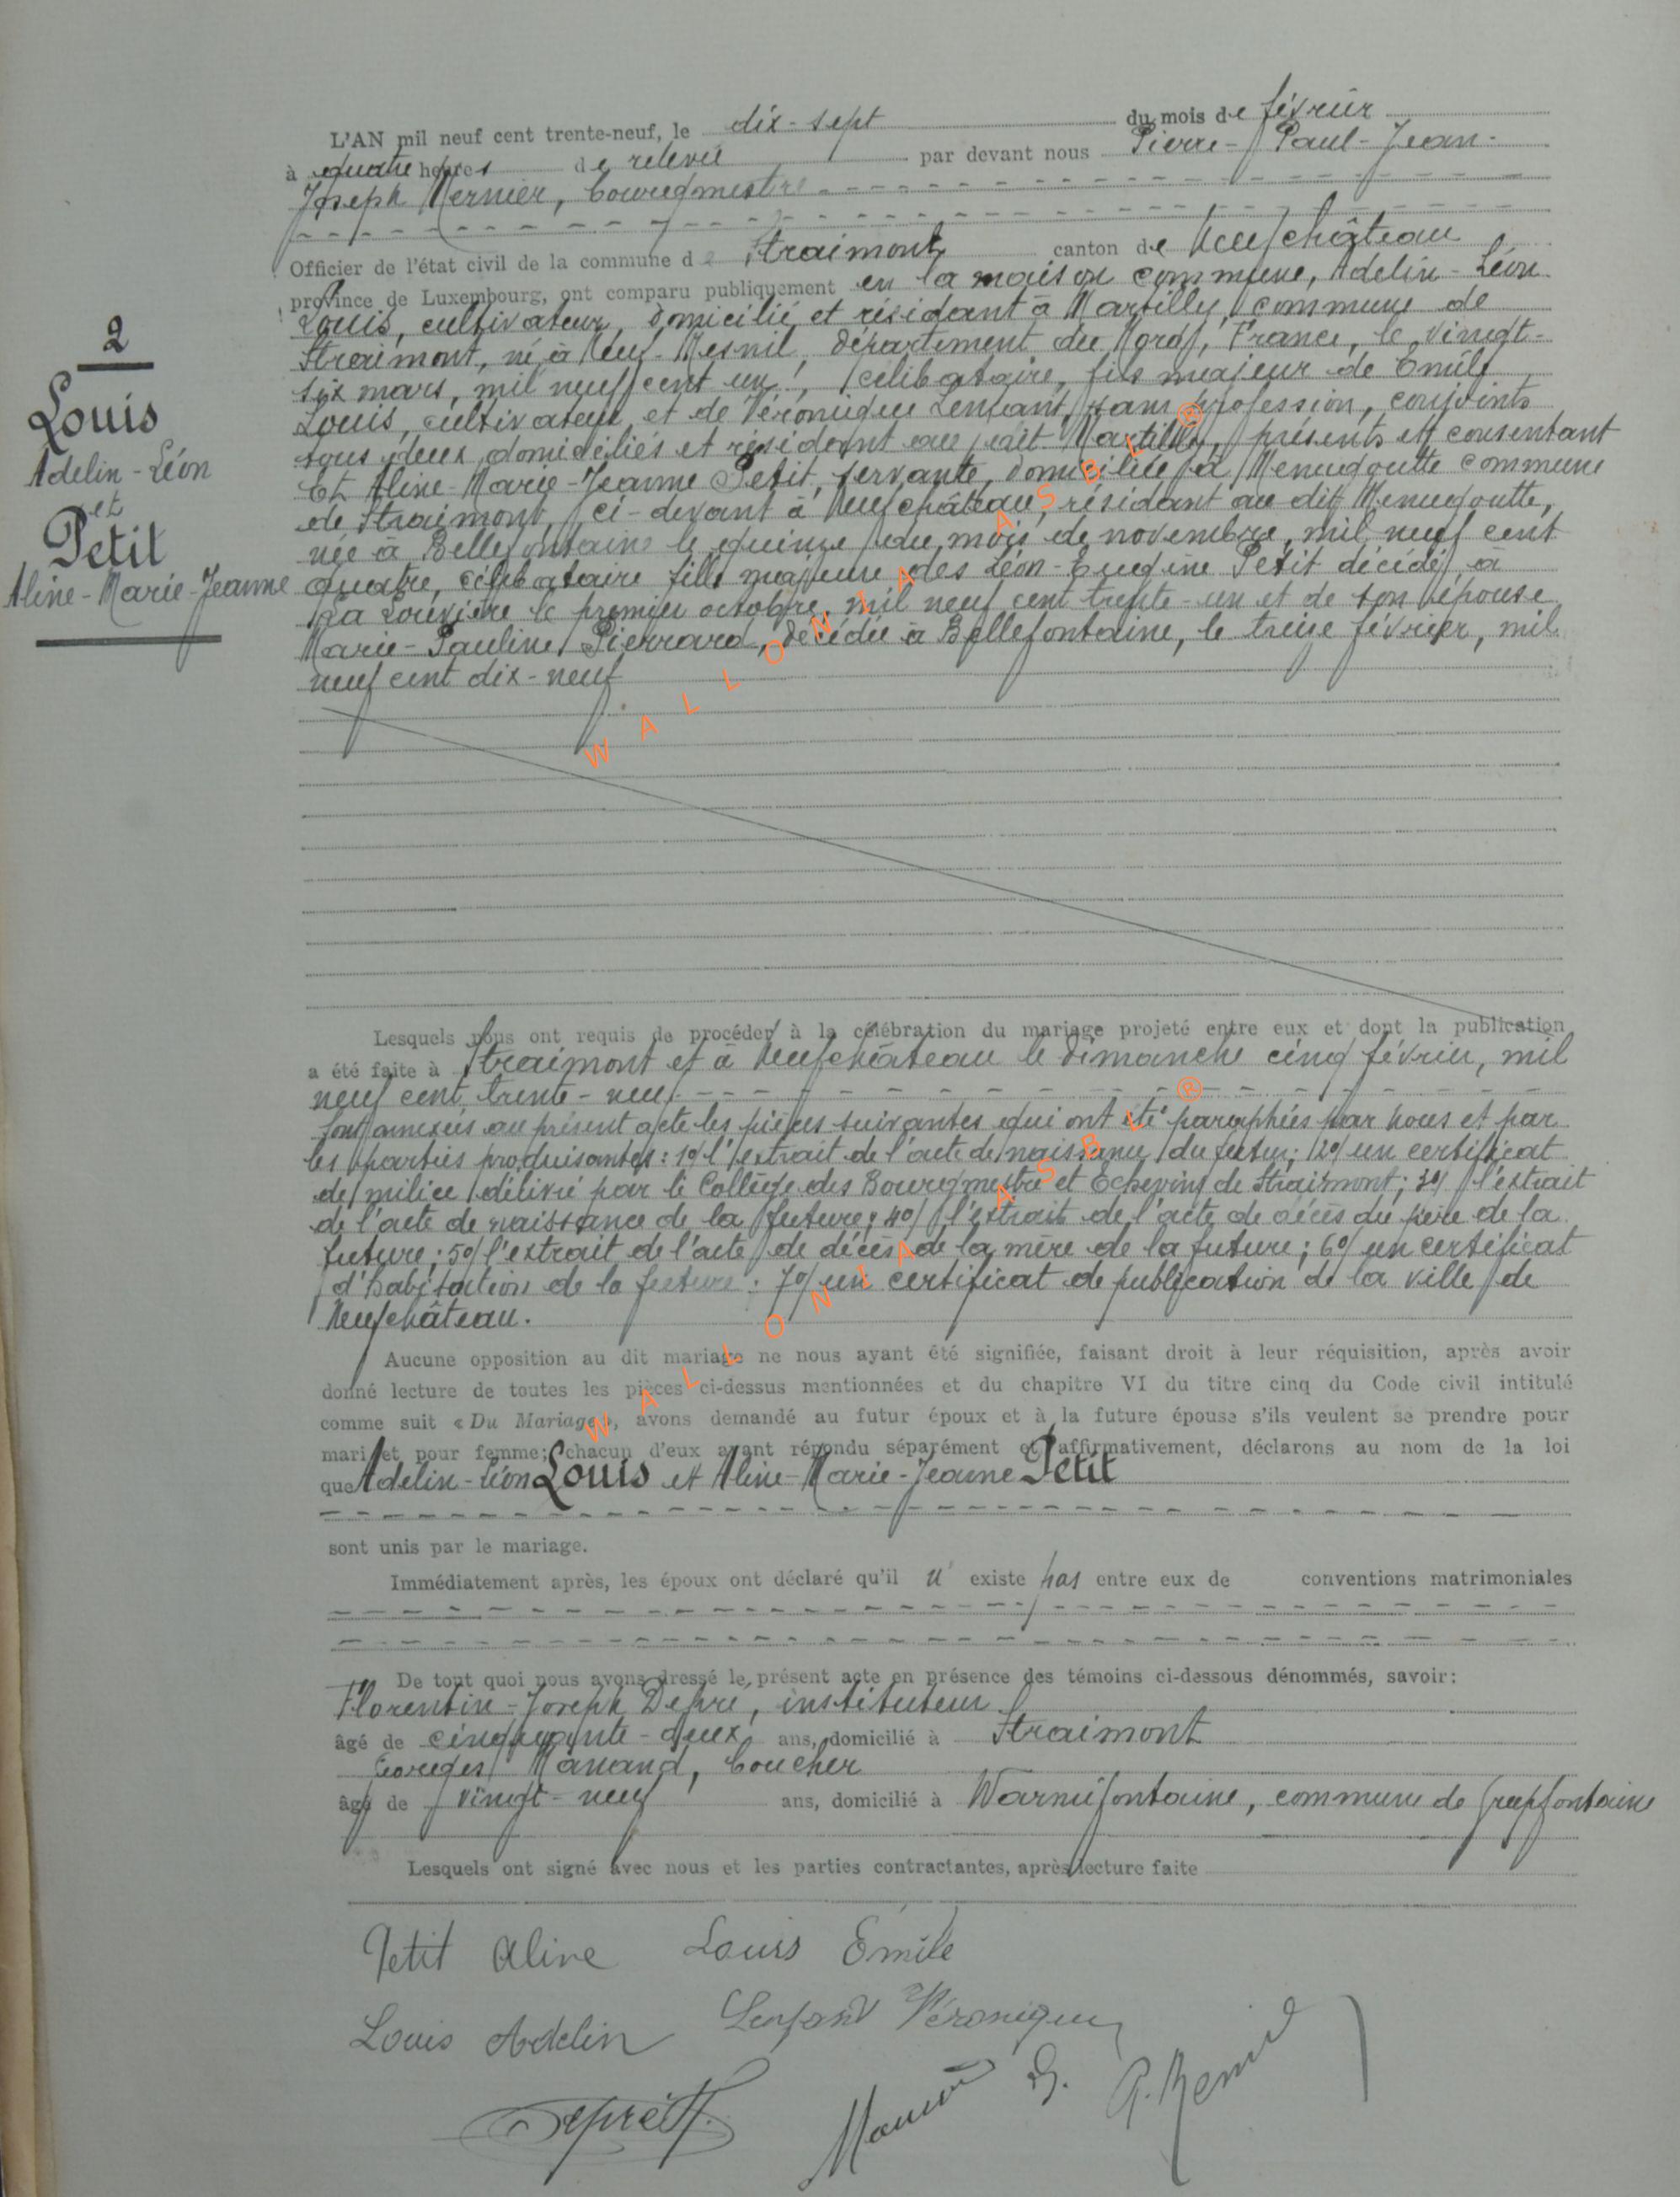 L'AN mil neuf cent trente-neuf, le dix-sept du mois de février
à quatre heures de relevée par devant nous Pierre-Paul-Jean-
Joseph Mernier, bourgmestre
Officier de l'état civil de la commune de Straimont canton de Neufchâteau
province de Luxembourg, ont comparu publiquement en la maison commune, Adelin-Léon
Louis, cultivateur, domicilié et résidant à Martilly, commune de
Straimont, né à Neuf-Mesnil, département du Nord, France, le vingt-
six mars, mil neuf cent un, célibataire, fils majeur de Emile
Louis, cultivateur et de Véronique Lenfant, sans profession, conjoints
tous deux domiciliés et résidant au prédit Martilly, présents et consentant
Et Aline-Marie-Jeanne Petit, servante, domiciliée à Menugoutte commune
de Straimont, ci-devant à Neufchâteau, résidant au dit Menugoutte,
née à Bellefontaine le quinze du mois de novembre, mil neuf cent
quatre, célibataire fille majeure des Léon-Eugène Petit décédé, à
La Louvière le premier octobre, mil neuf cent trente-un et de son épouse
Marie-Pauline Pierrard, décédée à Bellefontaine, le treize février, mil
neuf cent dix-neuf
2
Louis
Adelin-Léon
et
Petit
Aline-Marie-Jeanne
WALLONIA ASBL ®
Lesquels nous ont requis de procéder à la célébration du mariage projeté entre eux et dont la publication
a été faite à Straimont et à Neufchâteau le dimanche cinq février, mil
neuf cent trente-neuf
Sont annexés au présent acte les pièces suivantes qui ont été paraphées par nous et par
les parties produisantes: 1o/ l'extrait de l'acte de naissance du futur; 2o/ un certificat
de milice délivré par le Collège des Bourgmestre et Echevins de Straimont; 3o/ l'extrait
de l'acte de naissance de la future; 4o/ l'extrait de l'acte de décès du père de la
future; 5o/ l'extrait de l'acte de décès de la mère de la future; 6o/ un certificat
d'habitation de la future; 7o/ un certificat de publication de la ville de
Neufchâteau.
WALLONIA ASBL ®
Aucune opposition au dit mariage ne nous ayant été signifiée, faisant droit à leur réquisition, après avoir
donné lecture de toutes les pièces ci-dessus mentionnées et du chapitre VI du titre cinq du Code civil intitulé
comme suit « Du Mariage », avons demandé au futur époux et à la future épouse s'ils veulent se prendre pour
mari et pour femme; chacun d'eux ayant répondu séparément et affirmativement, déclarons au nom de la loi
que Adelin-Léon Louis et Aline-Marie-Jeanne Petit
sont unis par le mariage.
Immédiatement après, les époux ont déclaré qu'il n' existe pas entre eux de conventions matrimoniales
De tout quoi nous avons dressé le présent acte en présence des témoins ci-dessous dénommés, savoir:
Florentin-Joseph Depré, instituteur
âgé de cinquante-deux ans, domicilié à Straimont
Georges Manand, boucher
âgé de vingt-neuf ans, domicilié à Warmifontaine, commune de Grapfontaine
Lesquels ont signé avec nous et les parties contractantes, après lecture faite
Petit Aline Louis Emile
Louis Adelin Lenfant Véronique